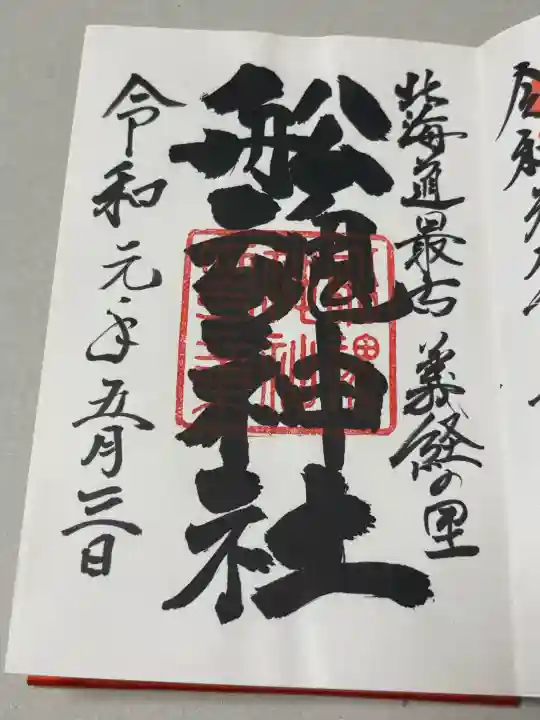 北海道最古 義経の里
船魂神社
令和元年五月三日